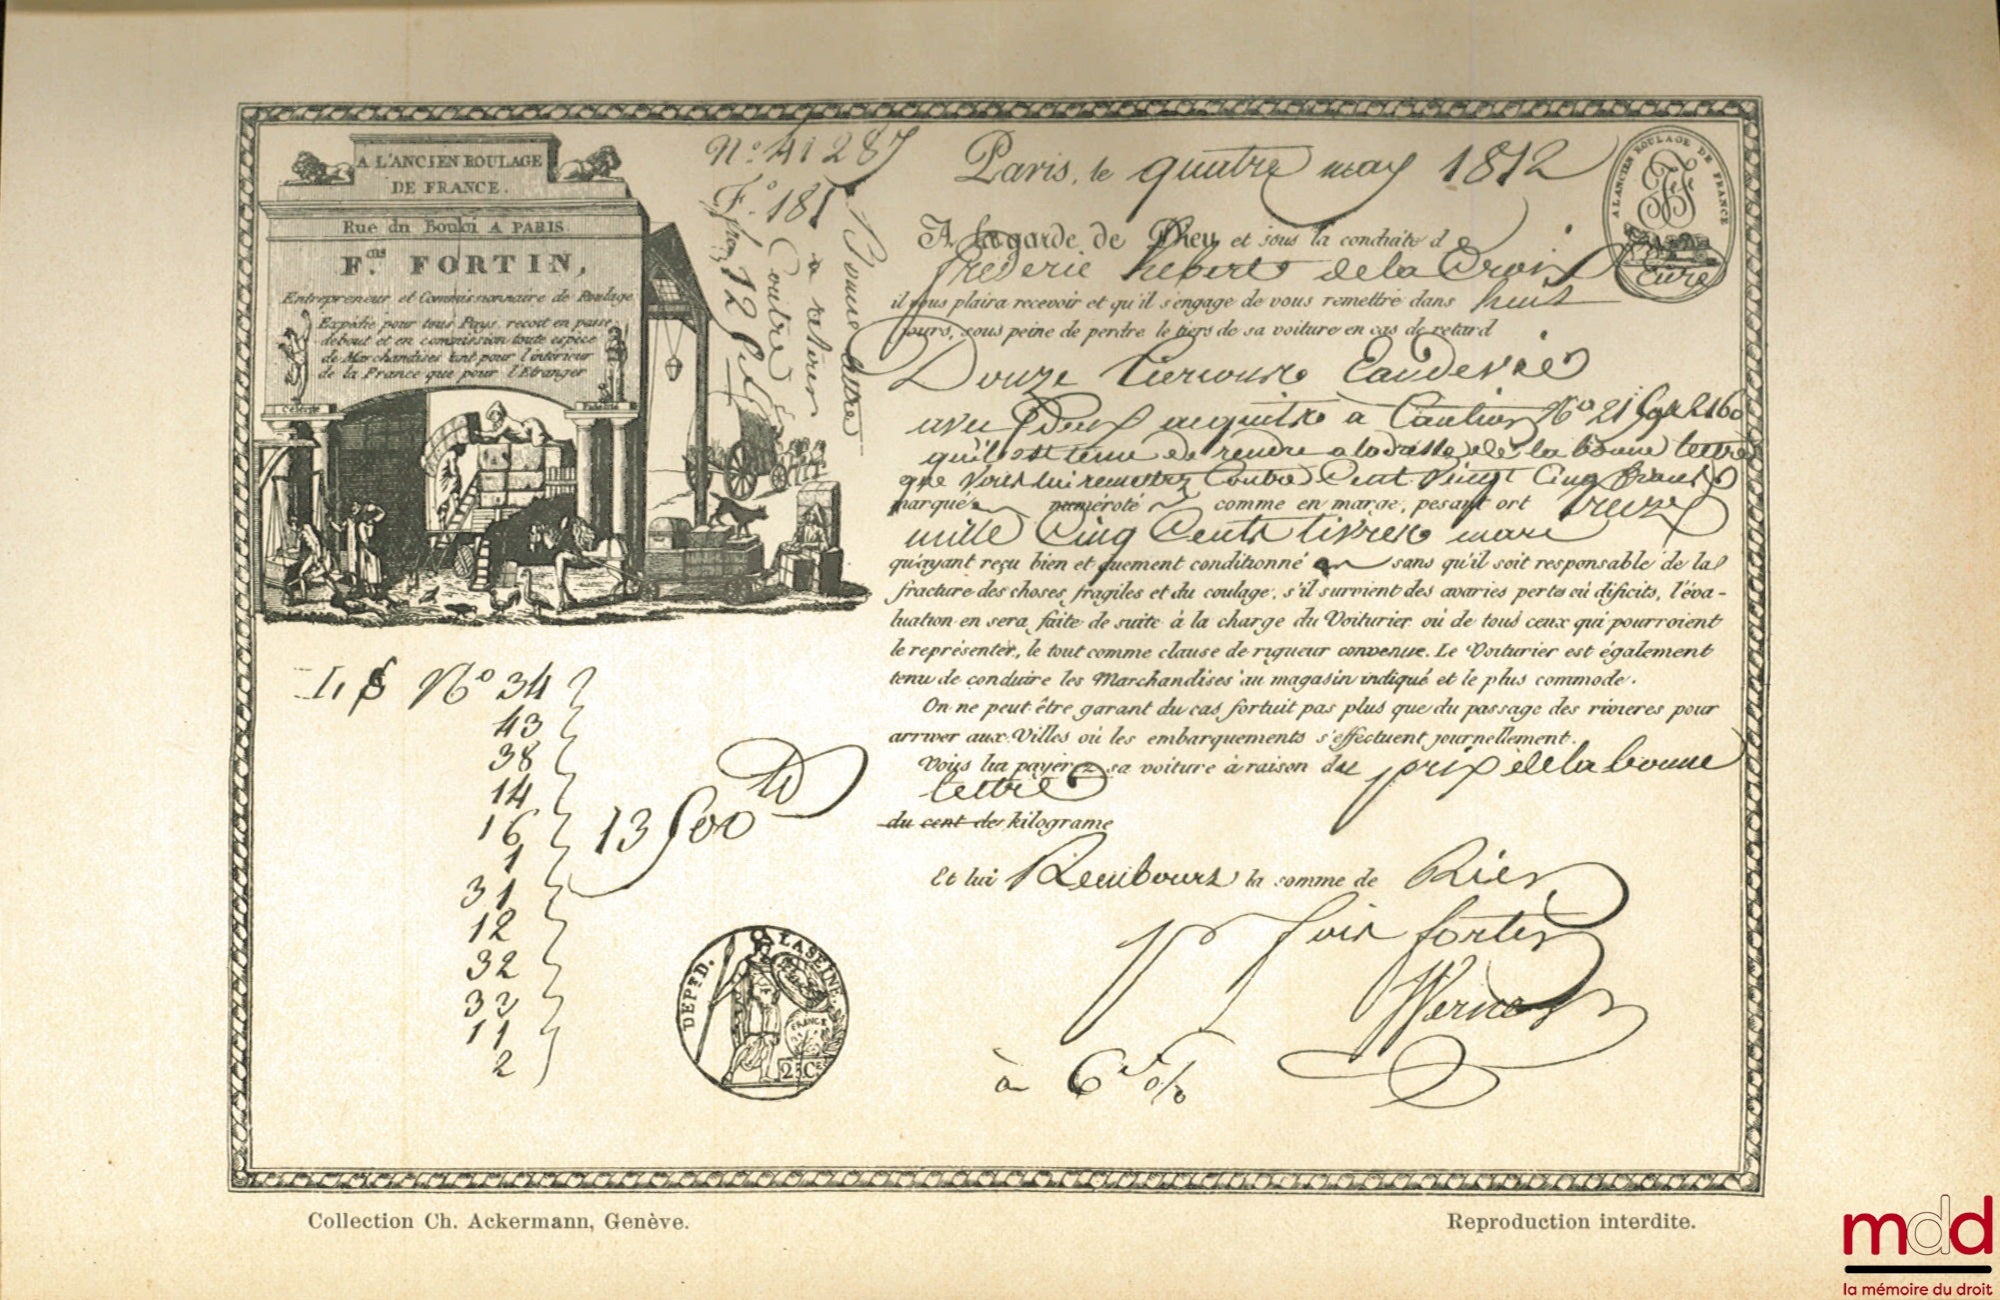 A L'ANCIEN ROULAGE
DE FRANCE.
Rue du Bouloi A PARIS
F.ois FORTIN,
Entrepreneur et Commissionnaire de Roulage
Expédie pour tous Pays, recoit en passe
debout et en commission toute espèce
de Marchandises tant pour l'intérieur
de la France que pour l'Etranger
Célérité
Fidélité
N.o 41287
F.o 181
a retirer
Contre
Bonne lettre
Paris, le quatre may 1812
A L'ANCIEN ROULAGE DE FRANCE
A la garde de Dieu et sous la conduite d
frederic hebert de la Croix
Eure
il vous plaira recevoir et qu'il s'engage de vous remettre dans huit
jours, sous peine de perdre le tiers de sa voiture en cas de retard
Douze Eaudevie
avec Deux acquits à Caution No 21 2160
qu'il est tenu de rendre a la de la bonne lettre
que Vous lui remettrez Contre Cent Vingt Cinq francs
marqué numéroté comme en marge, pesant ort treize
mille Cinq Cents livres marc
qu'ayant reçu bien et quement conditionné sans qu'il soit responsable de la
fracture des choses fragiles et du coulage, s'il survient des avaries pertes où dificits, l'éva-
luation en sera faite de suite à la charge du Voiturier où de tous ceux qui pourroient
le représenter, le tout comme clause de rigueur convenue. Le Voiturier est également
tenu de conduire les Marchandises au magasin indiqué et le plus commode.
On ne peut être garant du cas fortuit pas plus que du passage des rivieres pour
arriver aux Villes où les embarquements s'effectuent journellement.
Vous lui payerez sa voiture à raison du prix de la bonne
lettre
du cent de kilograme
Et lui Rembours la somme de Rien
fois fortin
Werner
à 6 %
No 34
43
38
14
16
1
31
12
32
32
11
2
13500
DEPT D. LA SEINE
FRANCE
25 Ces
Collection Ch. Ackermann, Genève.
Reproduction interdite.
mdd
la mémoire du droit